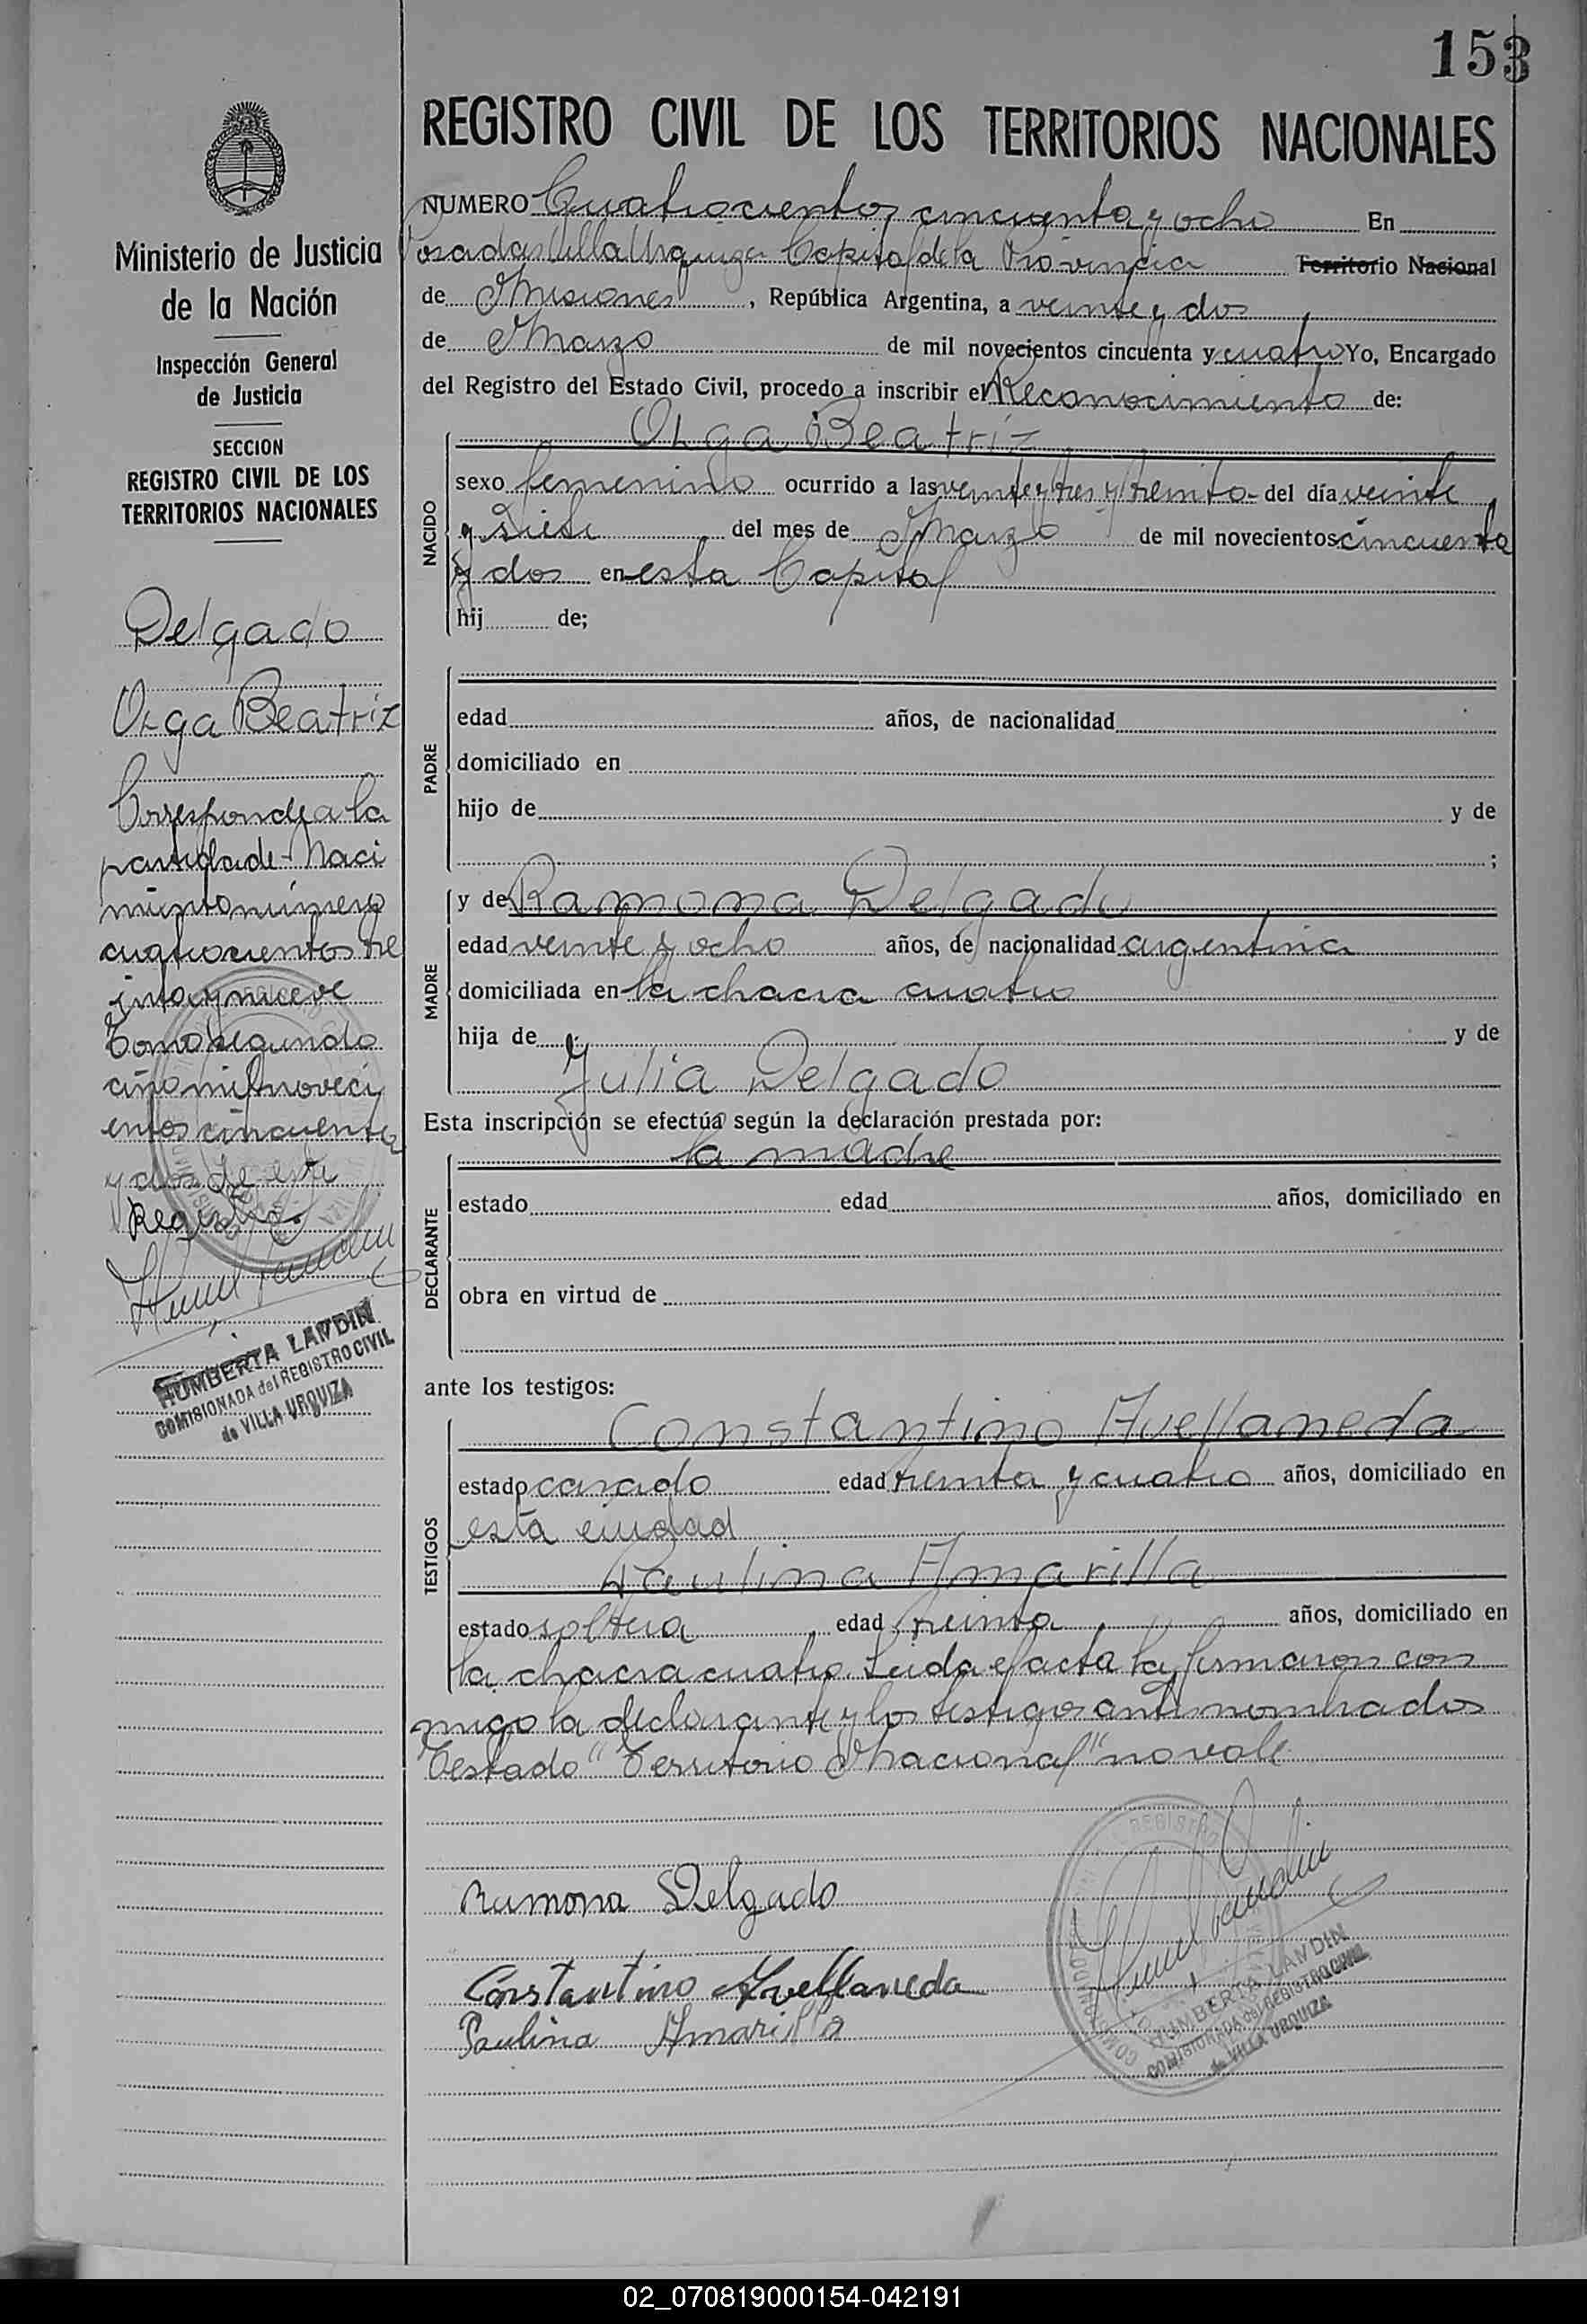 153
REGISTRO CIVIL DE LOS TERRITORIOS NACIONALES
Ministerio de Justicia
de la Nación
Inspección General
de Justicia
SECCION
REGISTRO CIVIL DE LOS
TERRITORIOS NACIONALES
Delgado
Olga Beatriz
Corresponde a la
partida de Naci
miento número
cuatrocientos tre
inta y nueve
Tomo segundo
año mil noveci
entos cincuenta
y dos de este
Registro
HUMBERTA LANDIN
COMISIONADA del REGISTRO CIVIL
de VILLA URQUIZA
NUMERO Cuatrocientos cincuenta y ocho En
Posadas Villa Urquiza Capital de la Provincia Territorio Nacional
de Misiones, República Argentina, a veinte y dos
de Marzo de mil novecientos cincuenta y cuatro Yo, Encargado
del Registro del Estado Civil, procedo a inscribir el Reconocimiento de:
NACIDO
Olga Beatriz
sexo femenino ocurrido a las veinte y tres y treinta del día veinte
y siete del mes de Marzo de mil novecientos cincuenta
y dos en esta Capital
hij de;
PADRE
edad años, de nacionalidad
domiciliado en
hijo de y de
;
MADRE
y de Ramona Delgado
edad veinte y ocho años, de nacionalidad argentina
domiciliada en la chacra cuatro
hija de y de
Julia Delgado
Esta inscripción se efectúa según la declaración prestada por:
DECLARANTE
la madre
estado edad años, domiciliado en
obra en virtud de
ante los testigos:
TESTIGOS
Constantino Avellaneda
estado casado edad treinta y cuatro años, domiciliado en
esta ciudad
Paulina Amarilla
estado soltera edad treinta años, domiciliado en
la chacra cuatro. Leida el acta la firmaron con
migo la declarante y los testigos antes nombrados
Testado "Territorio Nacional" no vale
Ramona Delgado
Constantino Avellaneda
Paulina Amarilla
HUMBERTA LANDIN
COMISIONADA del REGISTRO CIVIL
de VILLA URQUIZA
02_070819000154-042191